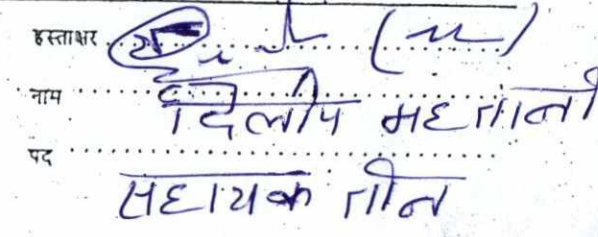 हस्ताक्षर
नाम दिलीप महतानी
पद सहायक तीन